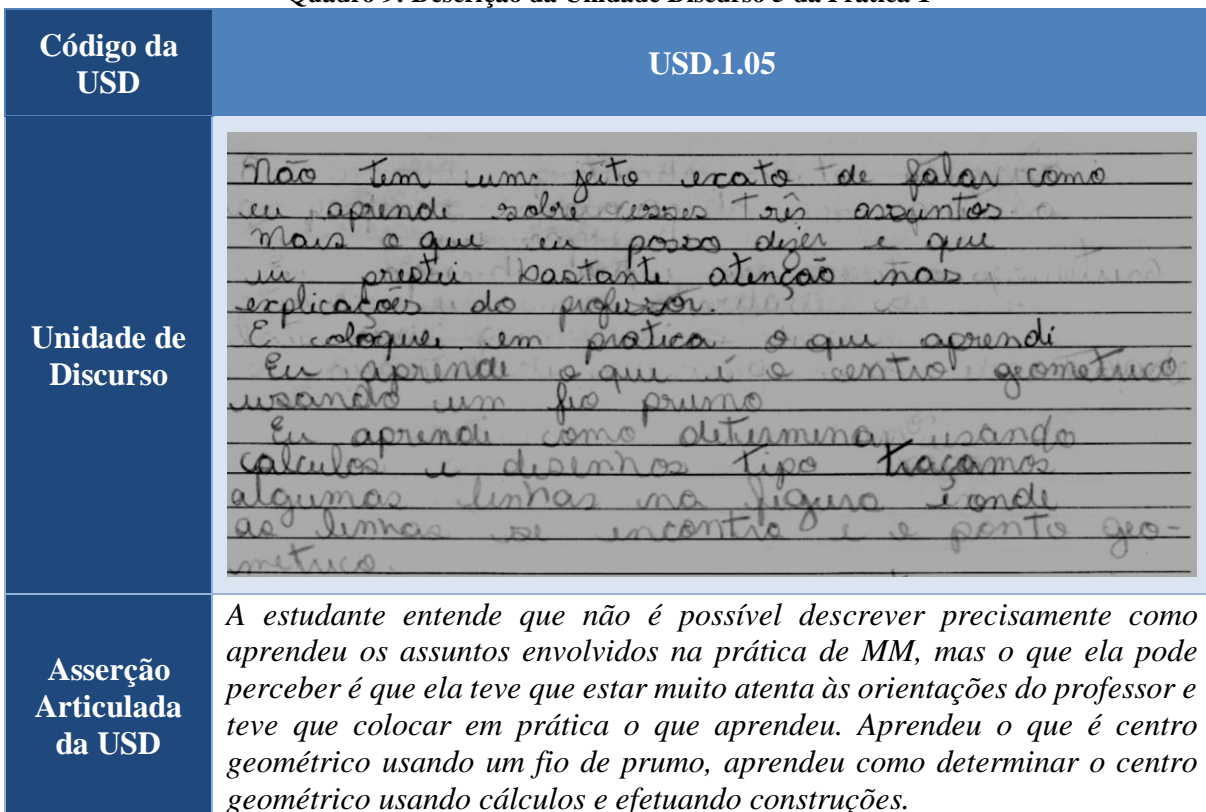 Quadro 9: Descrição da Unidade Discurso 5 da Prática 1
Código da
USD
USD.1.05
Unidade de
Discurso
Não tem um jeito exato de falar como
eu aprendi sobre esses três assuntos
mais o que eu posso dizer e que
eu prestei bastante atenção nas
explicações do professor.
E coloquei em pratica o que aprendi
Eu aprendi o que é o centro geometrico
usando um fio prumo
Eu aprendi como determinar usando
calculos e desenhos tipo traçamos
algumas linhas na figura e onde
as linhas se encontra e o ponto geo-
metrico.
Asserção
Articulada
da USD
A estudante entende que não é possível descrever precisamente como
aprendeu os assuntos envolvidos na prática de MM, mas o que ela pode
perceber é que ela teve que estar muito atenta às orientações do professor e
teve que colocar em prática o que aprendeu. Aprendeu o que é centro
geométrico usando um fio de prumo, aprendeu como determinar o centro
geométrico usando cálculos e efetuando construções.